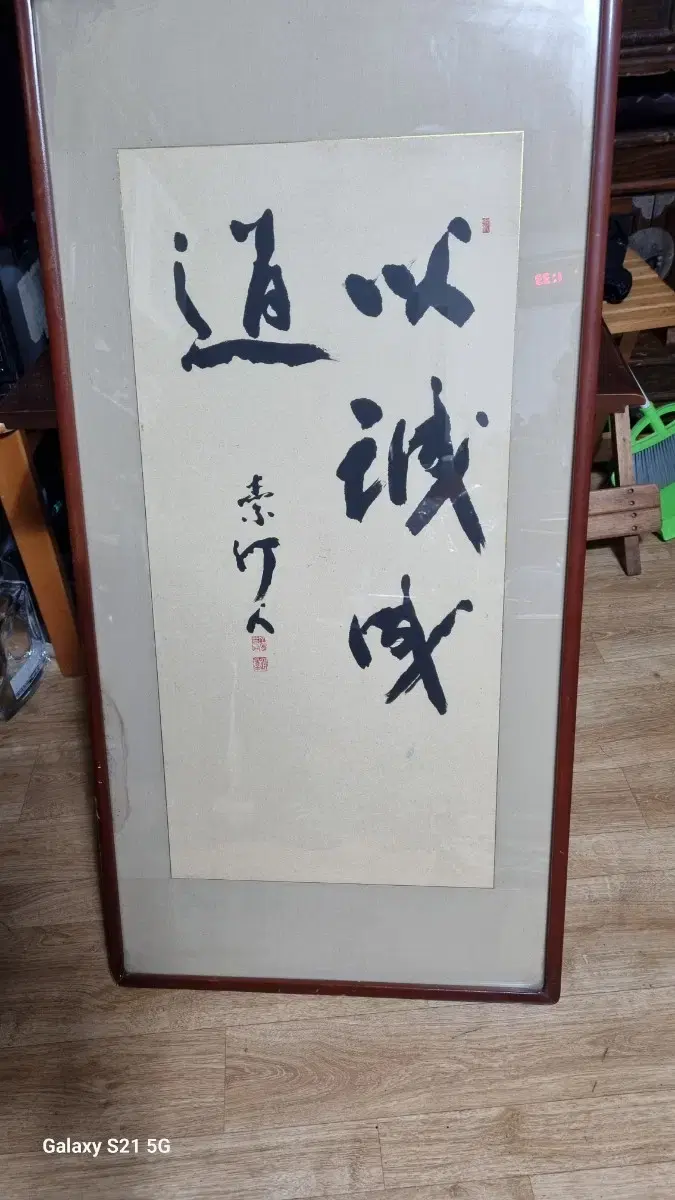 以誠成
道
Galaxy S21 5G